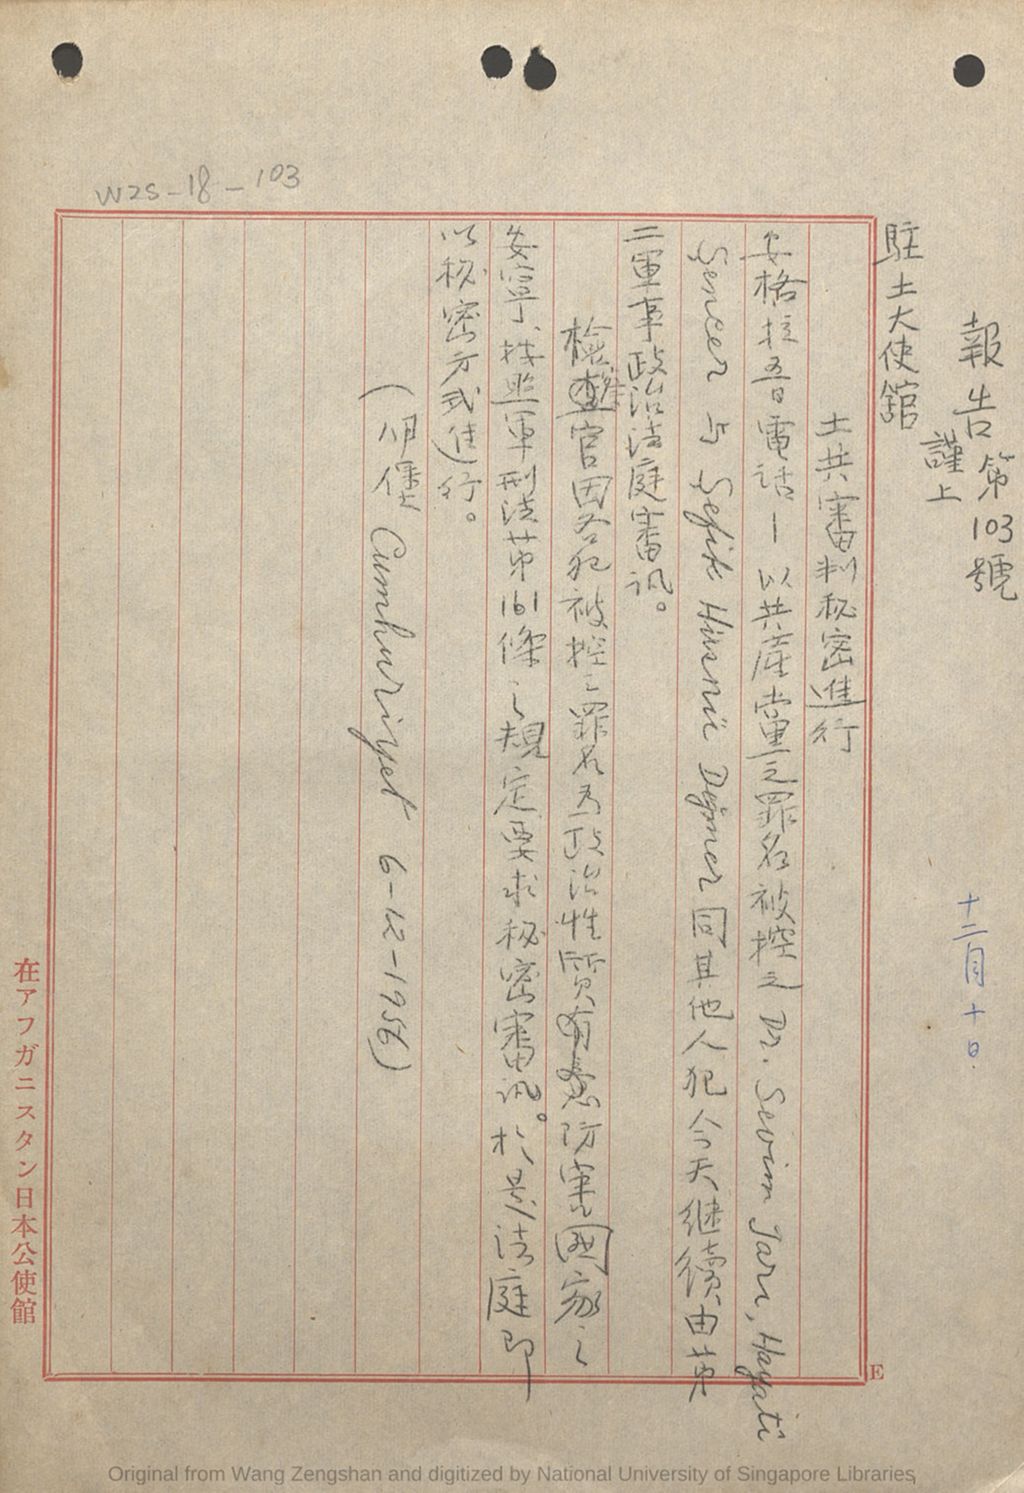 WZS-18-103
報告第103號
謹上
駐土大使舘
十二月十日
土共審判秘密進行
安格拉五日電話—以共產黨之罪名被控之 Dr. Sevim Tarı, Hayati
Sencer 与 Şefik Hüsnü Değmer 同其他人犯今天继續由苐
二軍事政治法庭審讯。
檢察官因各犯被控之罪名为政治性質有意防害國家之
安寧、按照軍刑法苐161條之規定要求秘密審讯。於是法庭即
以秘密方式進行。
(伊堡 Cumhuriyet 6-12-1956)
在アフガニスタン日本公使館
E
Original from Wang Zengshan and digitized by National University of Singapore Libraries